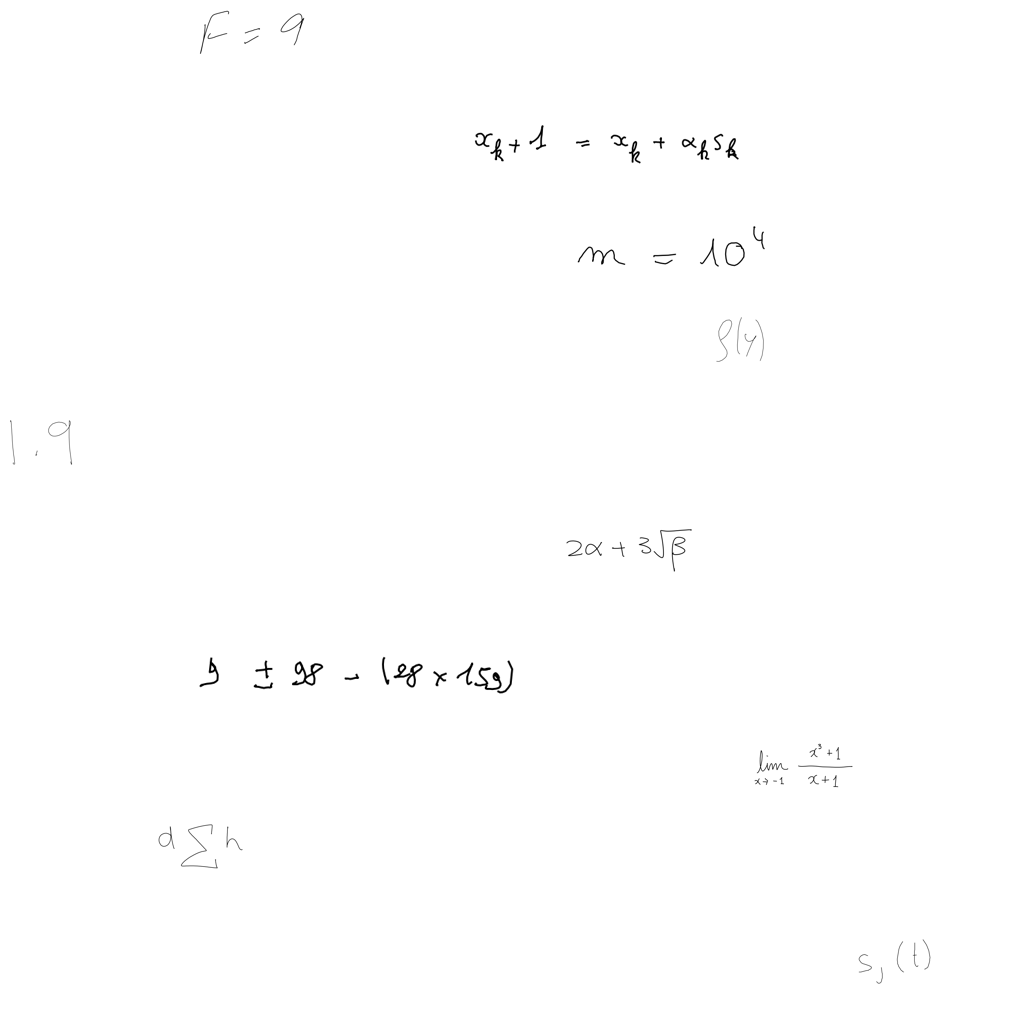 F = 9
x_k + 1 = x_k + α_k s_k
m = 10^4
ρ(y)
1.9
2α + 3√β
9 ± 98 - (28 × 159)
lim_{x→-1} (x^3+1)/(x+1)
d ∑ h
s_j (t)